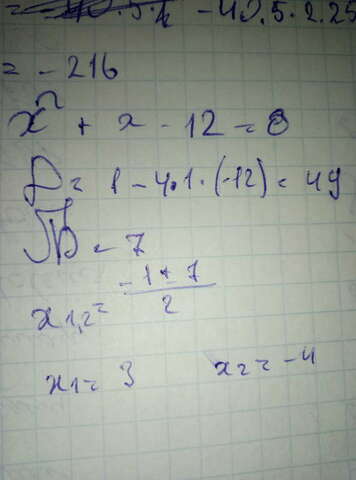 - 40.5.2.25
= - 216
x² + x - 12 = 0
D = 1 - 4·1·(-12) = 49
√D = 7
x1,2 = (-1 ± 7) / 2
x1 = 3 x2 = -4